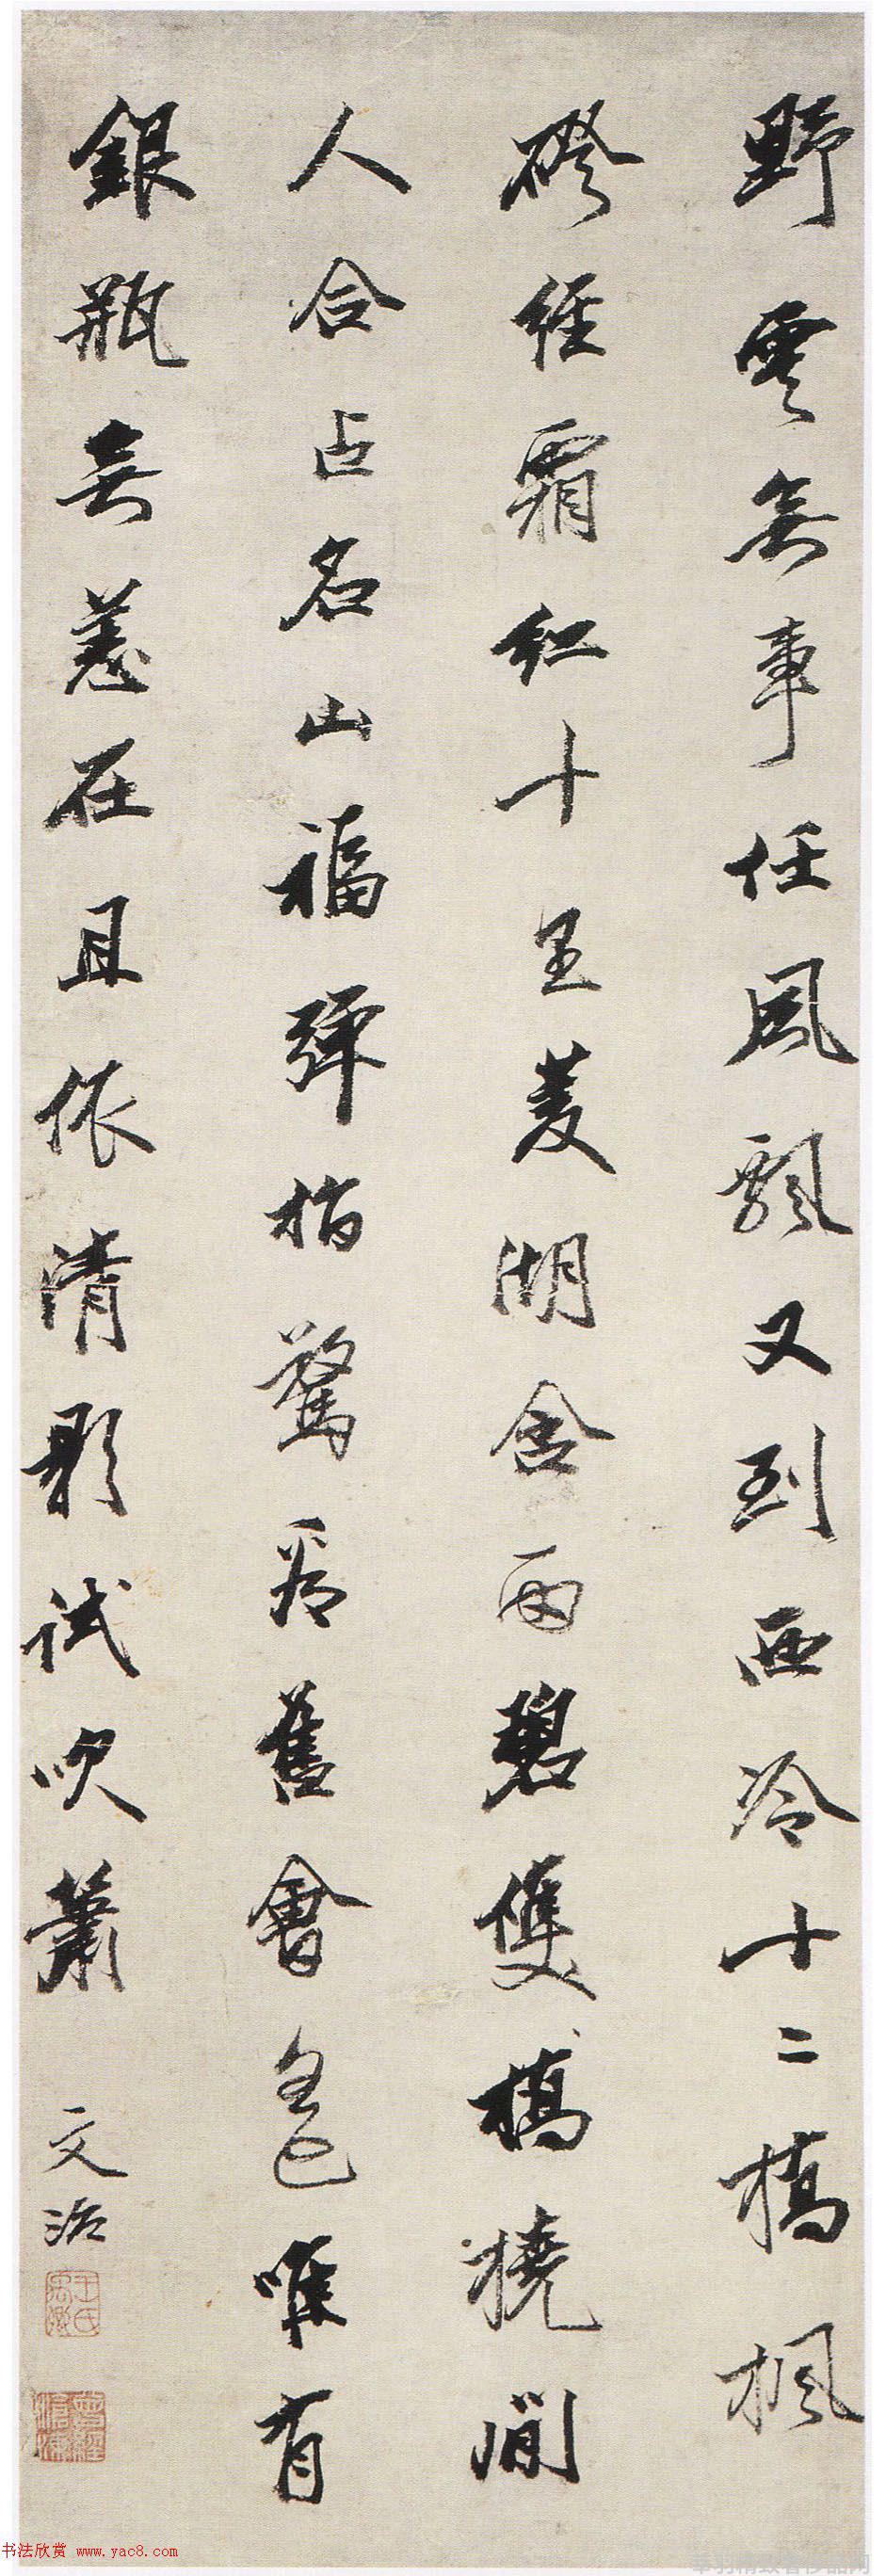 野雲無事任風飄又到西泠十二橋楓
磴經霜紅十里菱湖含雨碧雙橈閒
人合占名山福彈指驚看舊會色唯有
銀瓶無恙在且依清影試吹簫
文治
王氏禹卿
曾經滄海
书法欣赏 www.yac8.com